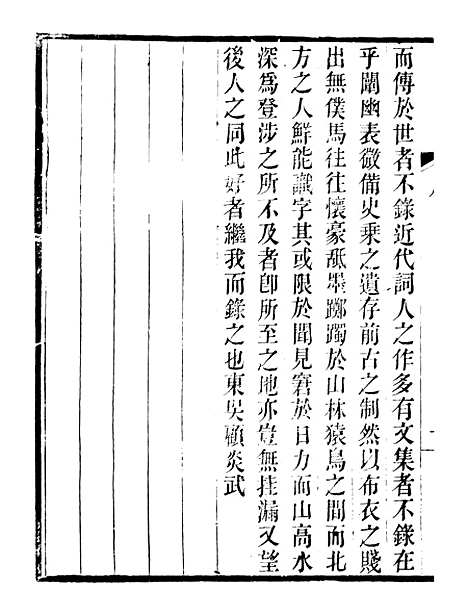 而傳於世者不錄近代詞人之作多有文集者不錄在
乎闡幽表微備史乗之遺存前古之制然以布衣之賤
出無僕馬往往懷豪舐墨躑躅於山林猿鳥之間而北
方之人鮮能識字其或限於聞見窘於日力而山高水
深為登涉之所不及者卽所至之地亦豈無挂漏又望
後人之同此好者繼我而錄之也東吳顧炎武